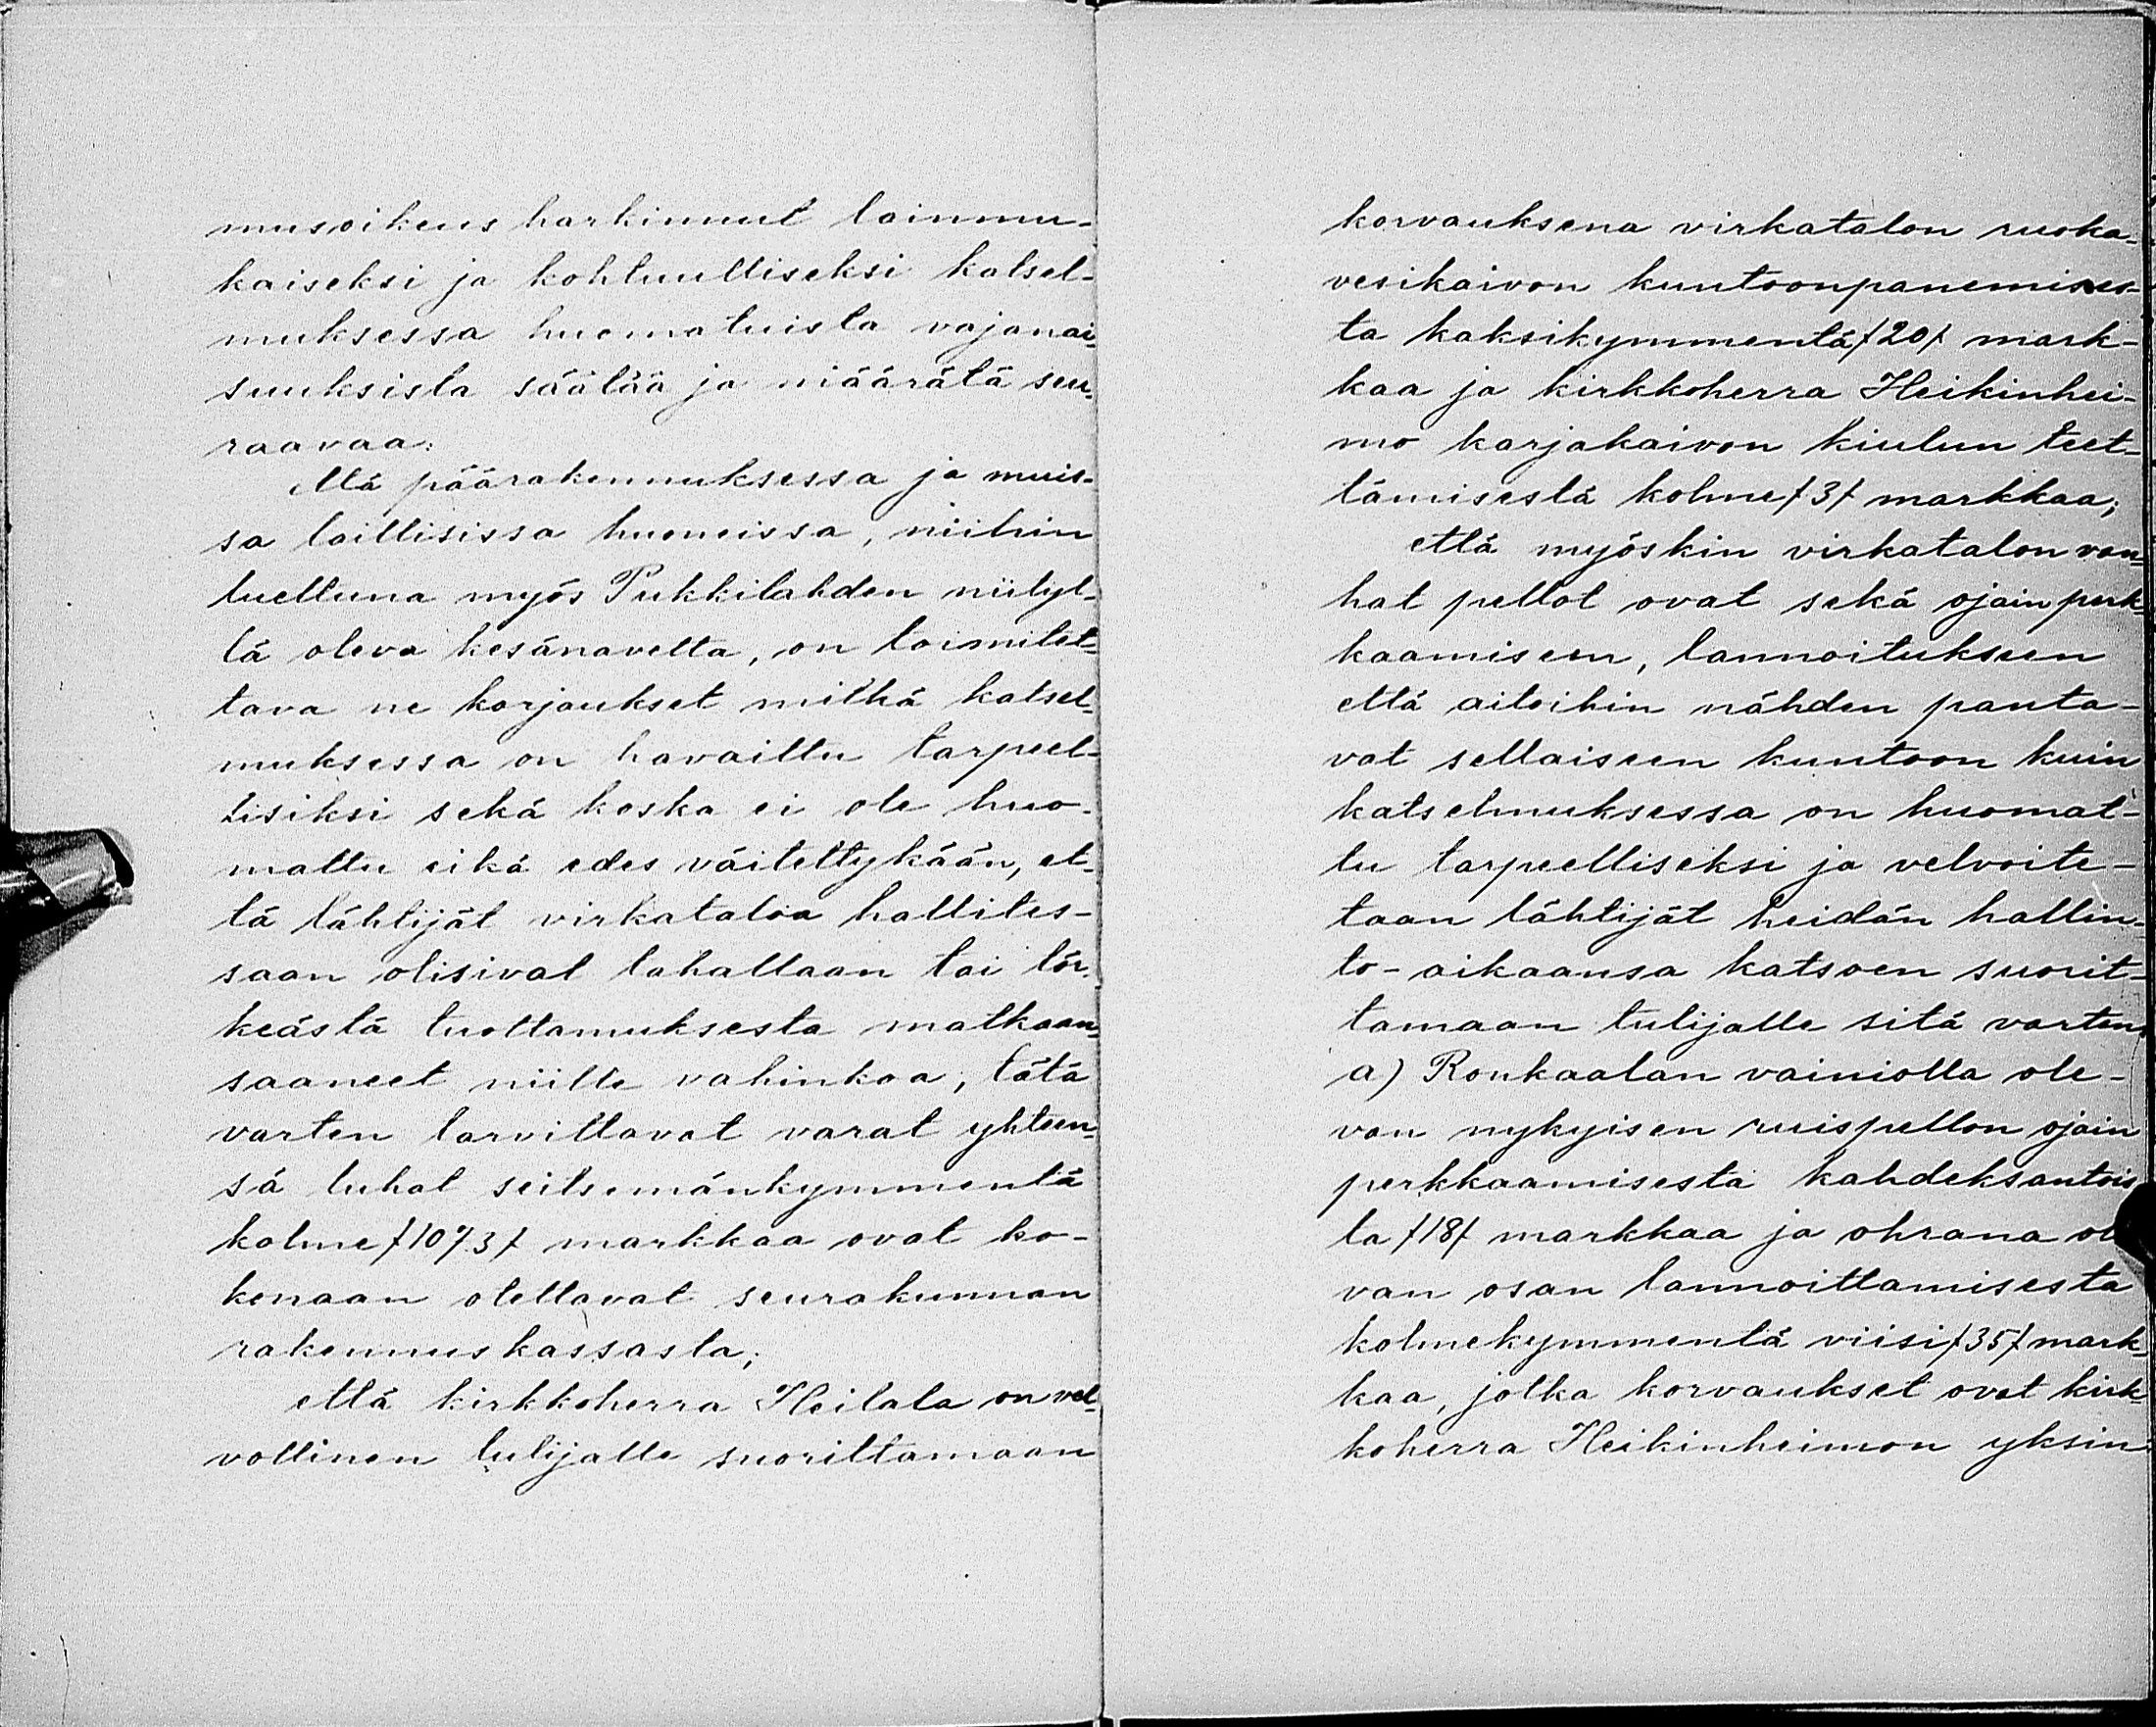 musoikeus harkinnut lainmu-
kaiseksi ja kohtuulliseksi katsel-
muksessa huomatuista vajanai-
suuksista säätää ja määrätä seu-
raavaa:
että päärakennuksessa ja muis-
sa laillisissa huoneissa, niihin
luettuna myös Pukkilahden niityl-
lä oleva kesänavetta, on toimitet-
tava ne korjaukset mitkä katsel-
muksessa on havaittu tarpeel-
lisiksi sekä koska ei ole huo-
mattu eikä edes väitettykään, et-
tä lähtijät virkataloa hallites-
saan olisivat tahallaan tai tör-
keästä tuottamuksesta matkaan-
saaneet niille vahinkoa, tätä
varten tarvittavat varat yhteen-
sä tuhat seitsemänkymmentä
kolme /1073/ markkaa ovat ko-
kenaan otettavat seurakunnan
rakennuskassasta;
että kirkkoherra Heilala on vel-
vollinen tulijalle suorittamaan
korvauksena virkatalon ruoka-
vesikaivon kuntoonpanemises-
ta kaksikymmentä /20/ mark-
kaa ja kirkkoherra Heikinhei-
mo karjakaivon kiulun teet-
tämisestä kolme /3/ markkaa;
että myöskin virkatalon van-
hat pellot ovat sekä ojain perk-
kaamiseen, lannoitukseen
että aitoihin nähden panta-
vat sellaiseen kuntoon kuin
katselmuksessa on huomat-
tu tarpeelliseksi ja velvoite-
taan lähtijät heidän hallin-
to-aikaansa katsoen suorit-
tamaan tulijalle sitä varten,
a) Ronkaalan vainiolla ole-
van nykyisen ruispellon ojain
perkkaamisesta kahdeksantois
ta /18/ markkaa ja ohrana ol
van osan lannoittamisesta
kolmekymmentä viisi /35/ mark-
kaa, jotka korvaukset ovat kirk-
koherra Heikinheimon yksin-